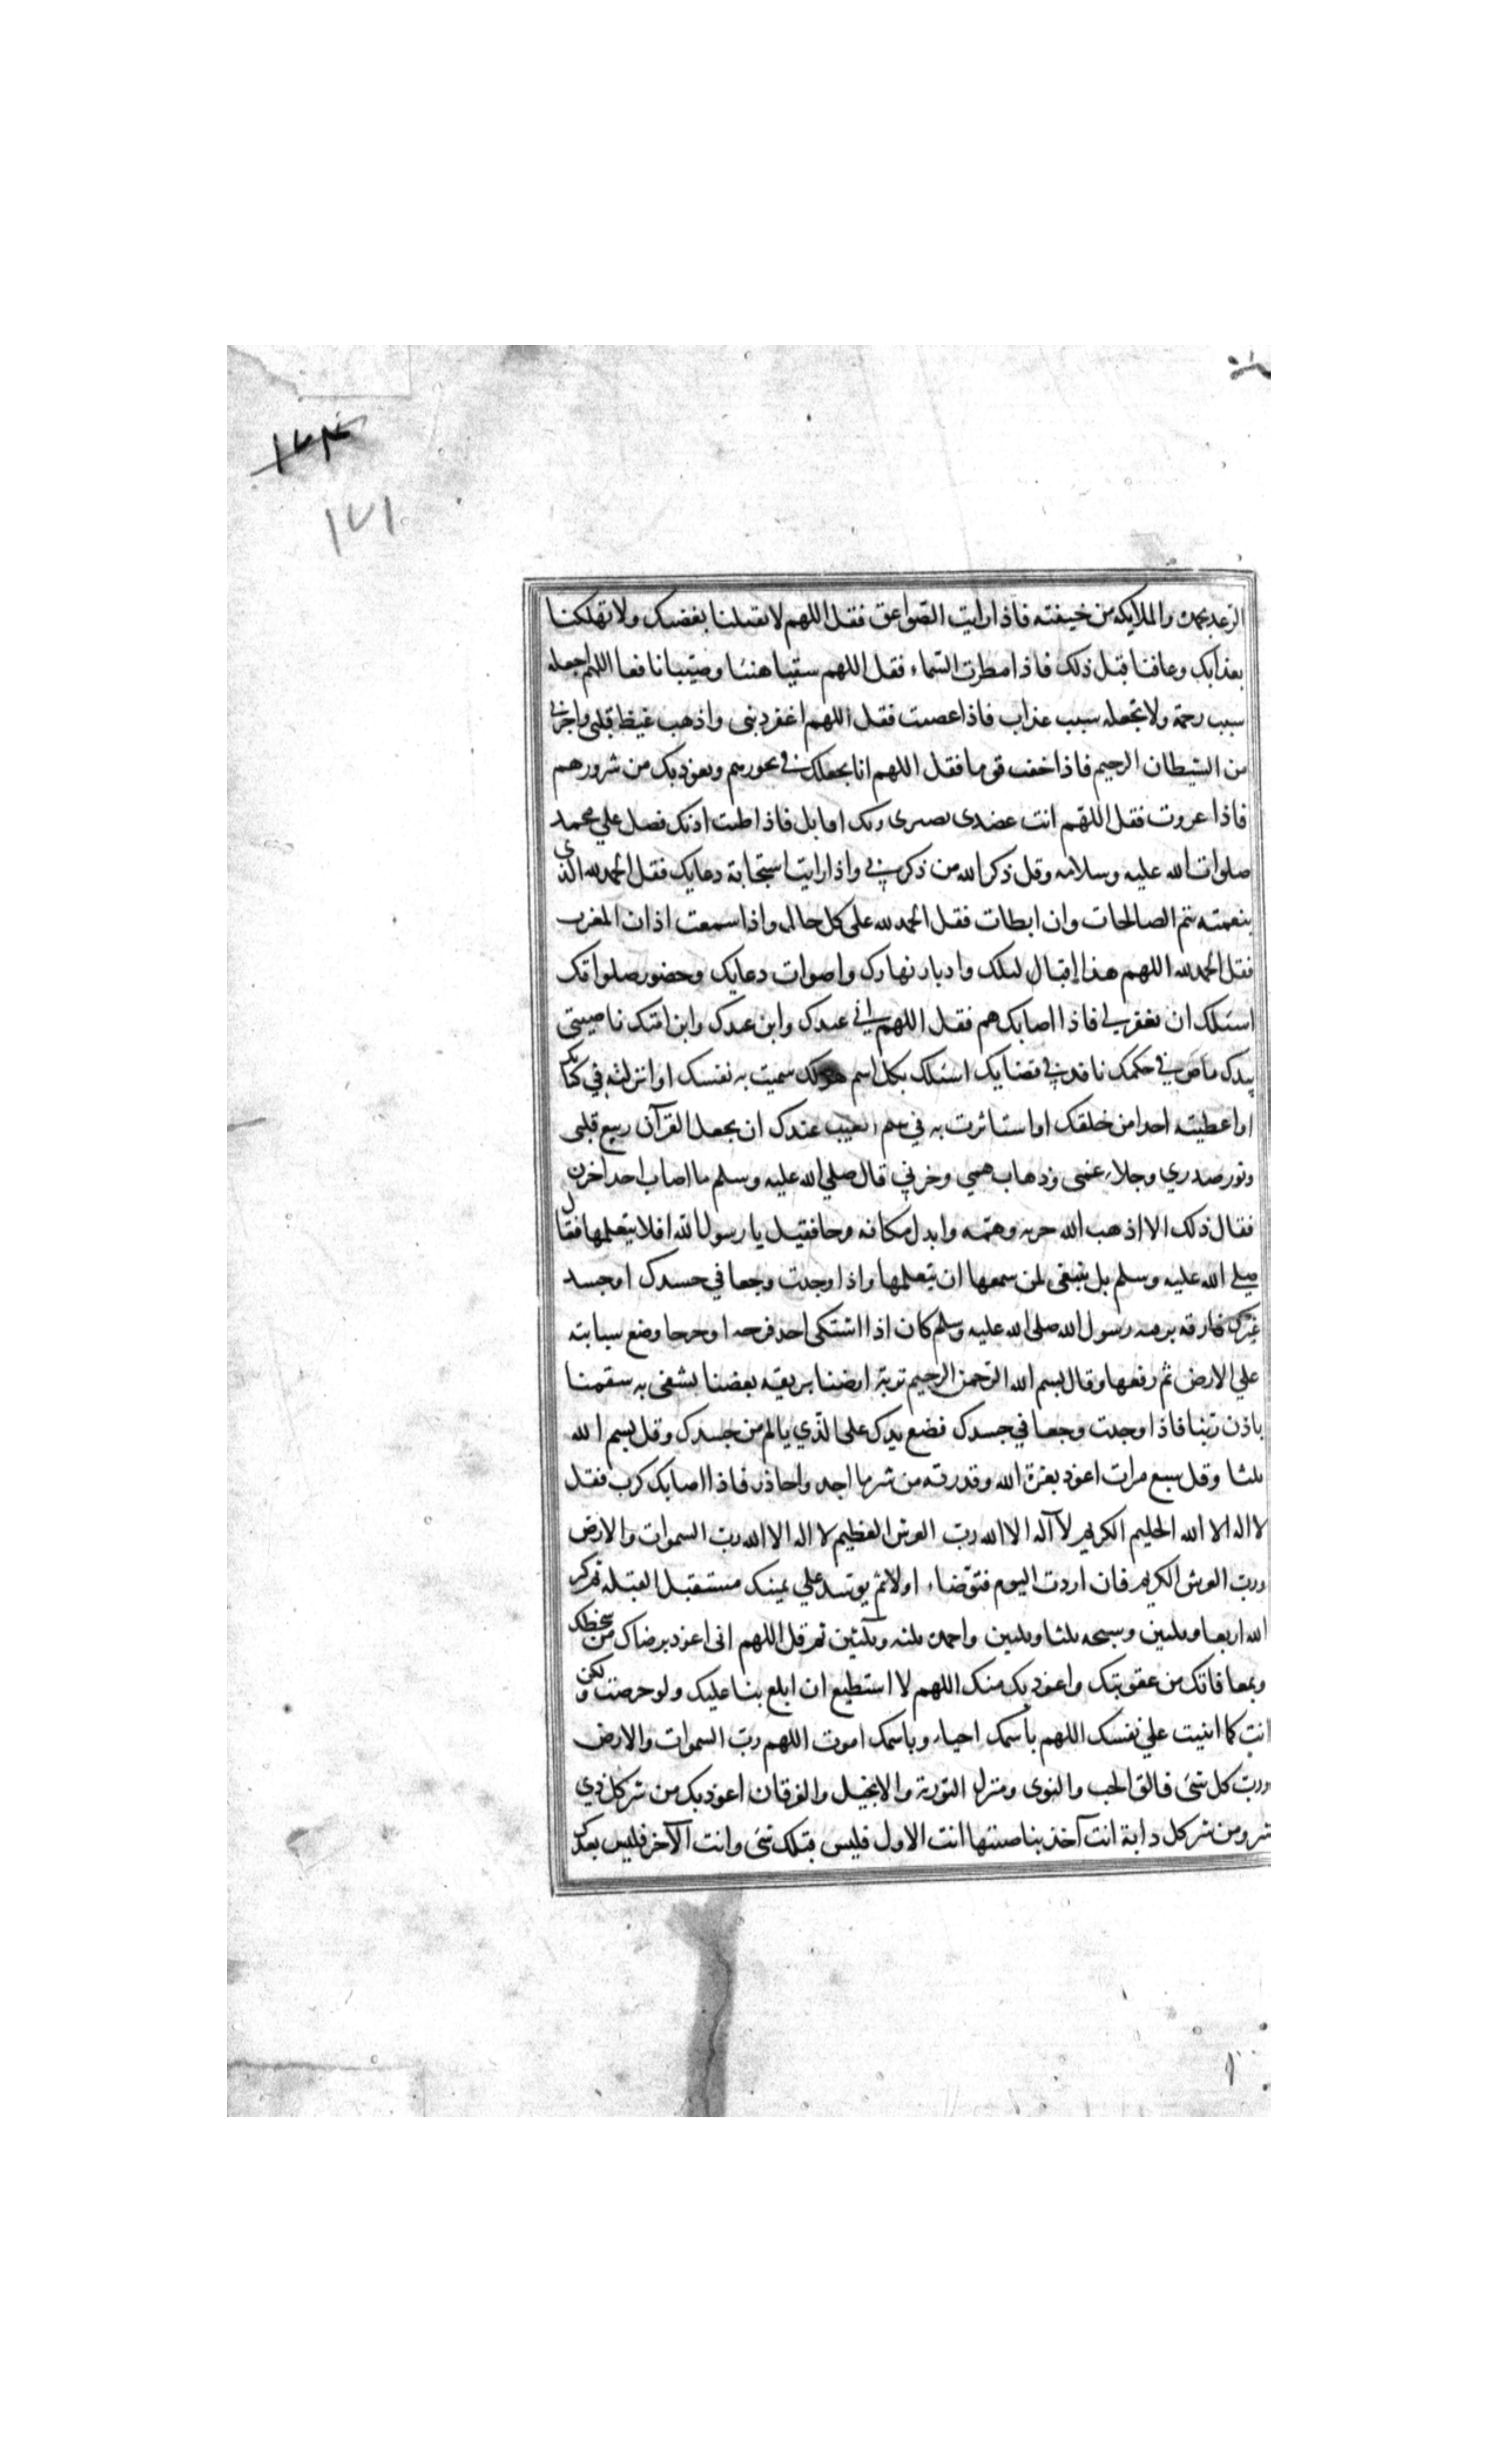 ١٧٤
١٧١
الرعد بحمده والملايكه من خيفته فاذا رايت الصواعق فقل اللهم لا تقتلنا بغضبك ولا تهلكنا
بعذابك وعافنا قبل ذلك فاذا امطرت السماء فقل اللهم سقيا هنئا وصيبا نافعا اللهم اجعله
سبب رحمة ولا تجعله سبب عذاب فاذا غضبت فقل اللهم اغفر ذنبى واذهب غيظ قلبى واجرنى
من الشيطان الرجيم فاذا خفت قوما فقل اللهم انا نجعلك في نحورهم ونعوذ بك من شرورهم
فاذا غزوت فقل اللهم انت عضدى ونصيرى وبك اقاتل فاذا طنت اذنك فصل علي محمد
صلوات الله عليه وسلامه وقل ذكر الله من ذكرني واذا رايت استجابة دعايك فقل الحمد لله الذي
بنعمته تتم الصالحات وان ابطات فقل الحمد لله على كل حال واذا سمعت اذان المغرب
فقل الحمد لله اللهم هذا اقبال ليلك وادبار نهارك واصوات دعايك وحضور صلواتك
اسئلك ان تغفر لي فاذا اصابك هم فقل اللهم اني عبدك وابن عبدك وابن امتك ناصيتى
بيدك ماض في حكمك نافذ في قضايك اسئلك بكل اسم هو لك سميت به نفسك او انزلته في كتابك
او اعطيته احدا من خلقك او استاثرت به في علم الغيب عندك ان تجعل القرآن ربيع قلبى
ونور صدري وجلاء غمى وذهاب همي وحزني قال صلي الله عليه وسلم ما اصاب احدا حزن
فقال ذلك الا اذهب الله حزنه وهمه وابدل مكانه فرحا فقيل يا رسول الله افلا يتعلمها فقال
صلى الله عليه وسلم بل ينبغى لمن سمعها ان يتعلمها واذا وجدت وجعا في جسدك او جسد
غيرك فارقه برقية رسول الله صلى الله عليه وسلم كان اذا اشتكى احد قرحه او جرحا وضع سبابته
علي الارض ثم رفعها وقال بسم الله الرحمن الرحيم تربة ارضنا بريقه بعضنا يشفى به سقمنا
باذن ربنا فاذا وجدت وجعا في جسدك فضع يدك على الذي يالم من جسدك وقل بسم الله
ثلثا وقل سبع مرات اعوذ بعزة الله وقدرته من شر ما اجد واحاذر فاذا اصابك كرب فقل
لا اله الا الله الحليم الكريم لا آله الا الله رب العرش العظيم لا اله الا الله رب السموات والارض
ورب العرش الكريم فان اردت اليوم فتوضاء اولا ثم توسد علي يمينك مستقبل القبله ثم كبر
الله اربعا وثلثين وسبحه ثلثا وثلثين واحمده ثلثه وثلثين ثم قل اللهم انى اعوذ برضاك من سخطك
وبمعافاتك من عقوبتك واعوذ بك منك اللهم لا استطيع ان ابلغ ثنا عليك ولو حرصت ولكن
انت كما اثنيت علي نفسك اللهم باسمك احيا وباسمك اموت اللهم رب السموات والارض
ورب كل شئ فالق الحب والنوى ومنزل التورية والانجيل والفرقان اعوذ بك من شر كل ذي
شر ومن شر كل دابة انت آخذ بناصيتها انت الاول فليس قبلك شئ وانت الآخر فليس بعدك